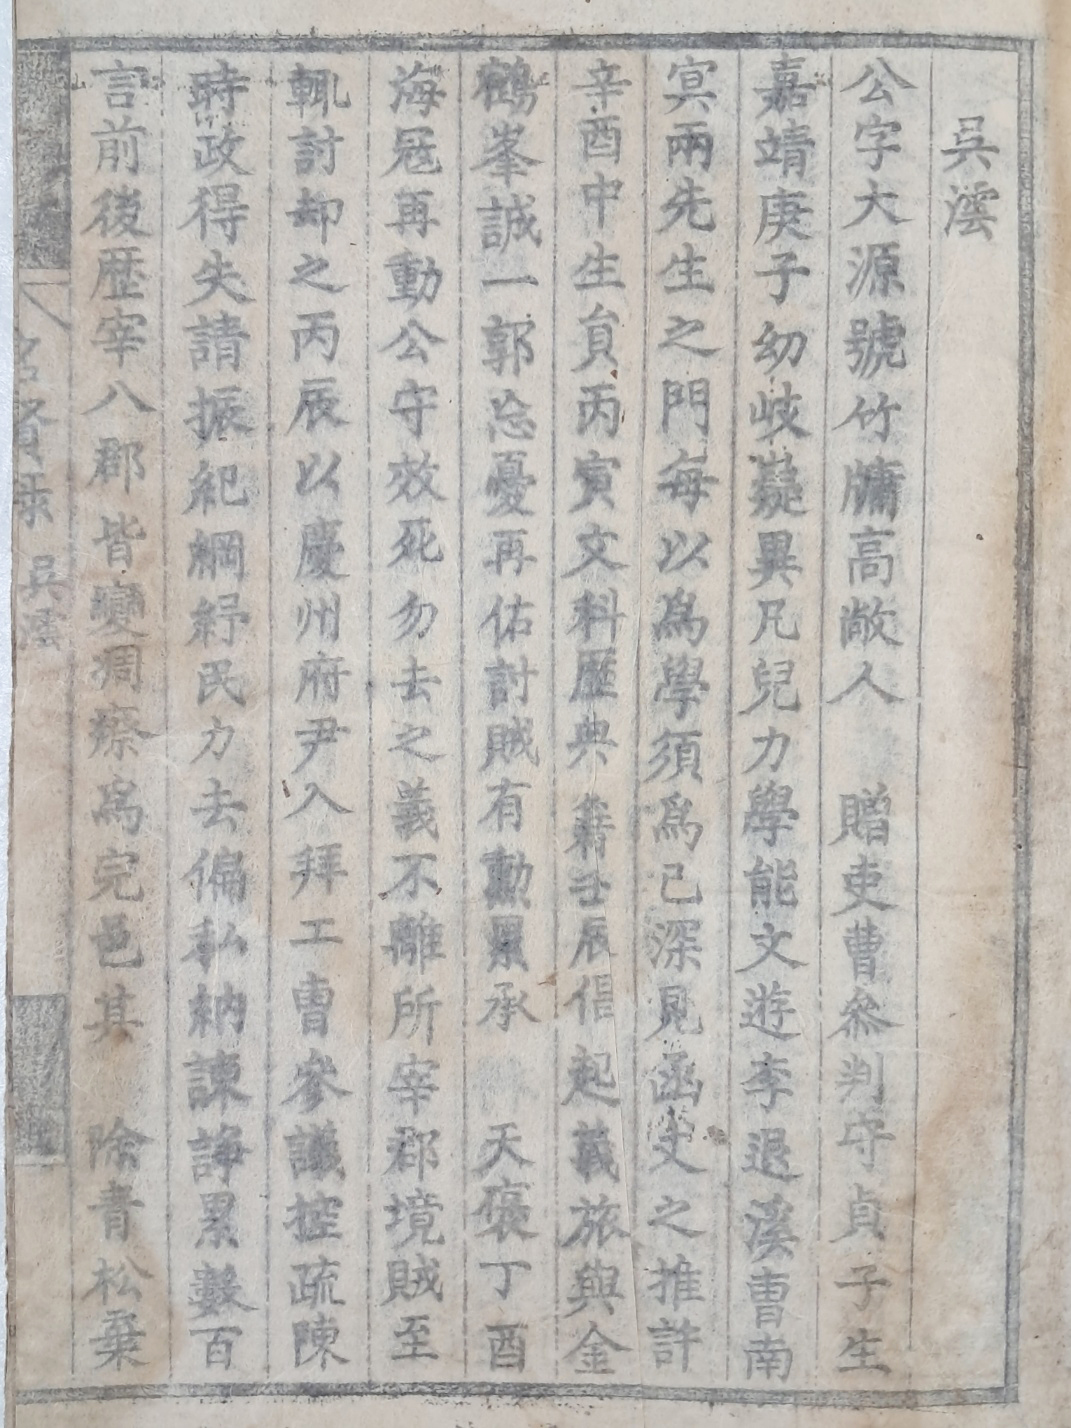 吳澐
公字大源號竹牖高敞人　贈吏曹參判守貞子生
嘉靖庚子幼岐嶷異凡兒力學能文遊李退溪曺南
冥兩先生之門每以爲學須爲己深見函丈之推許
辛酉中生員丙寅文科歷典籍壬辰倡起義旅與金
鶴峯誠一郭忘憂再佑討賊有勳累承　天褒丁酉
海冦再動公守效死勿去之義不離所宰郡境賊至
輒討却之丙辰以慶州府尹入拜工曺參議控疏陳
時政得失請振紀綱紓民力去偏私納諫諍累數百
言前後歷宰八郡皆變凋瘵爲完邑其　除靑松棄
名賢录 吳澐